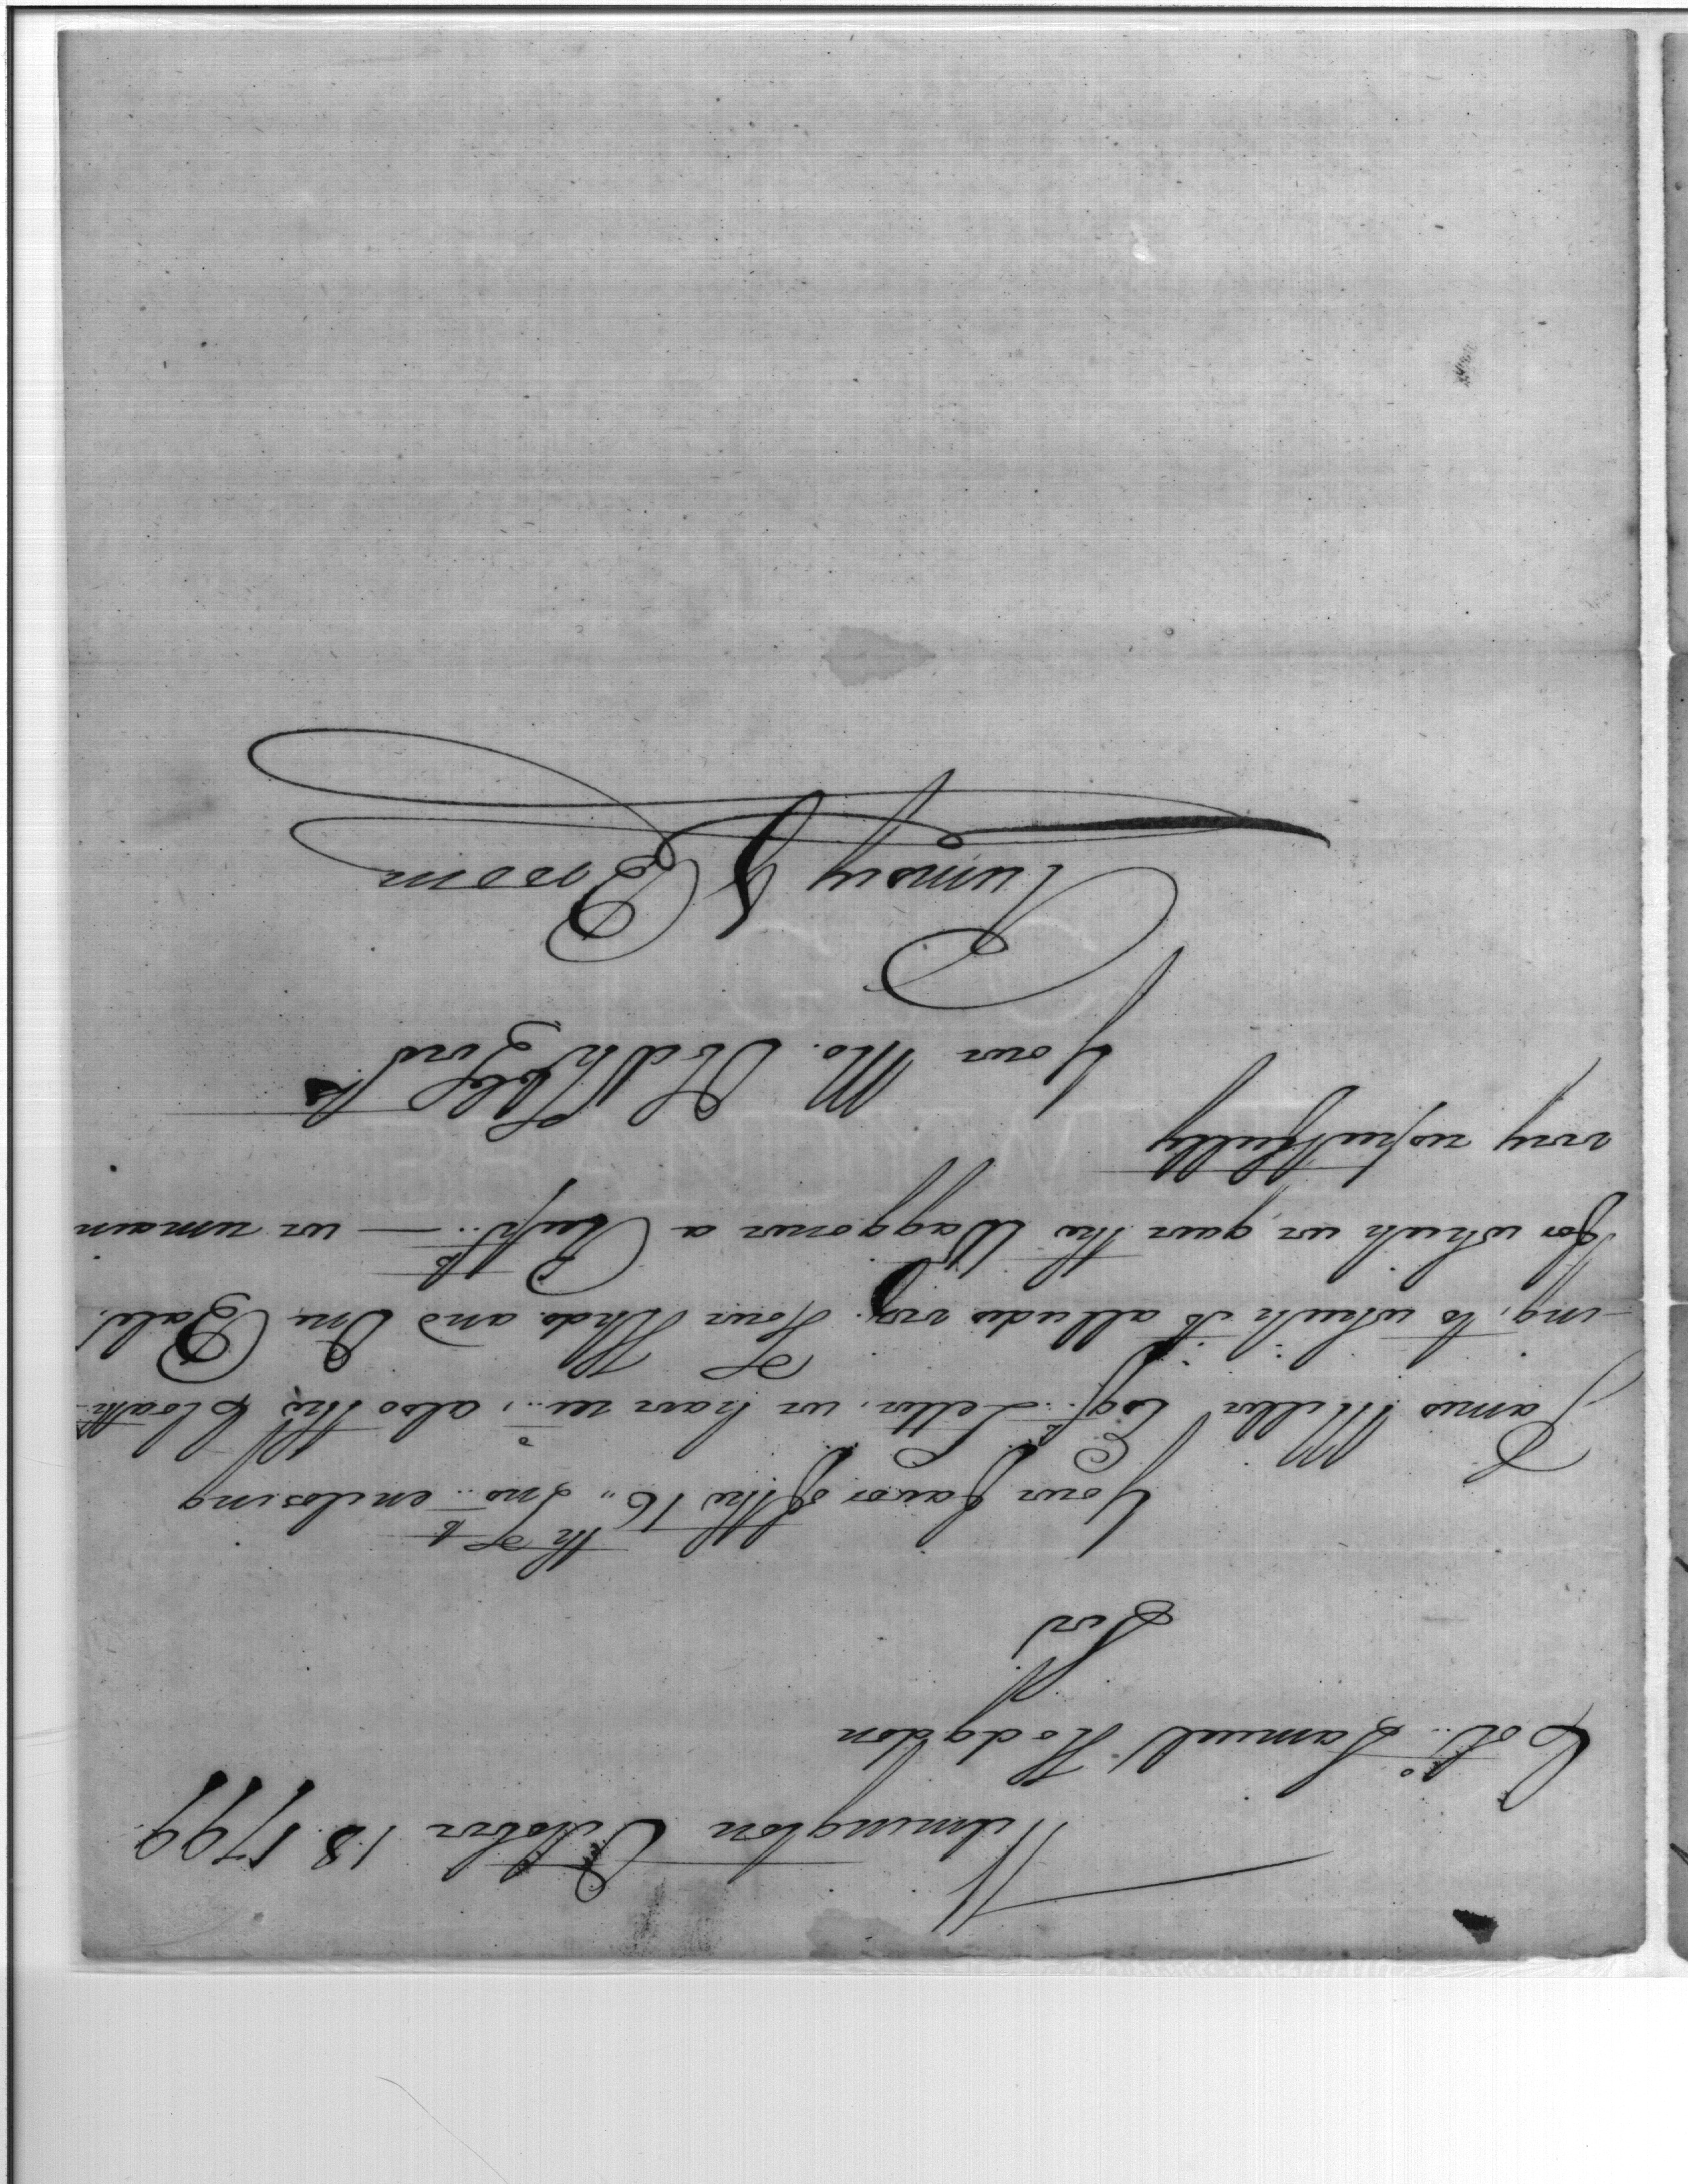 Wilmington October 18 1799
Col.o Samuel Hodgdon
Sir
Your favor of the 16th Inst enclosing
James Miller Esqr. Letter, we have rec., also the Cloath-
ing, to which it alludes viz. Four Hhds. and One Bale,
for which we gave the Waggoner a Rect. — we remain
very respectfully
Your Mo. Obdt. Hble Servts
Rumsey & Broom
BRANDYWINE